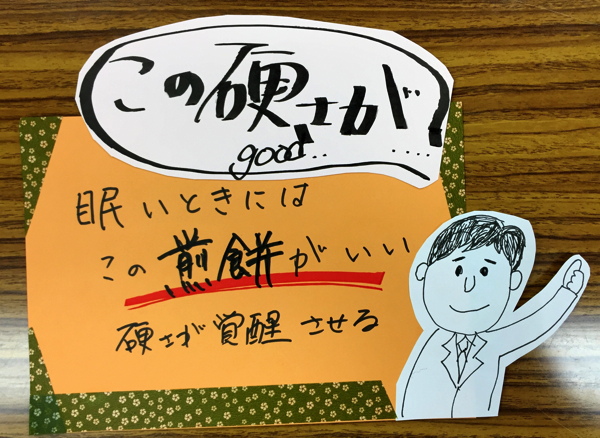 この硬さが
good.. ....
眠いときには
この煎餅がいい
硬さが覚醒させる